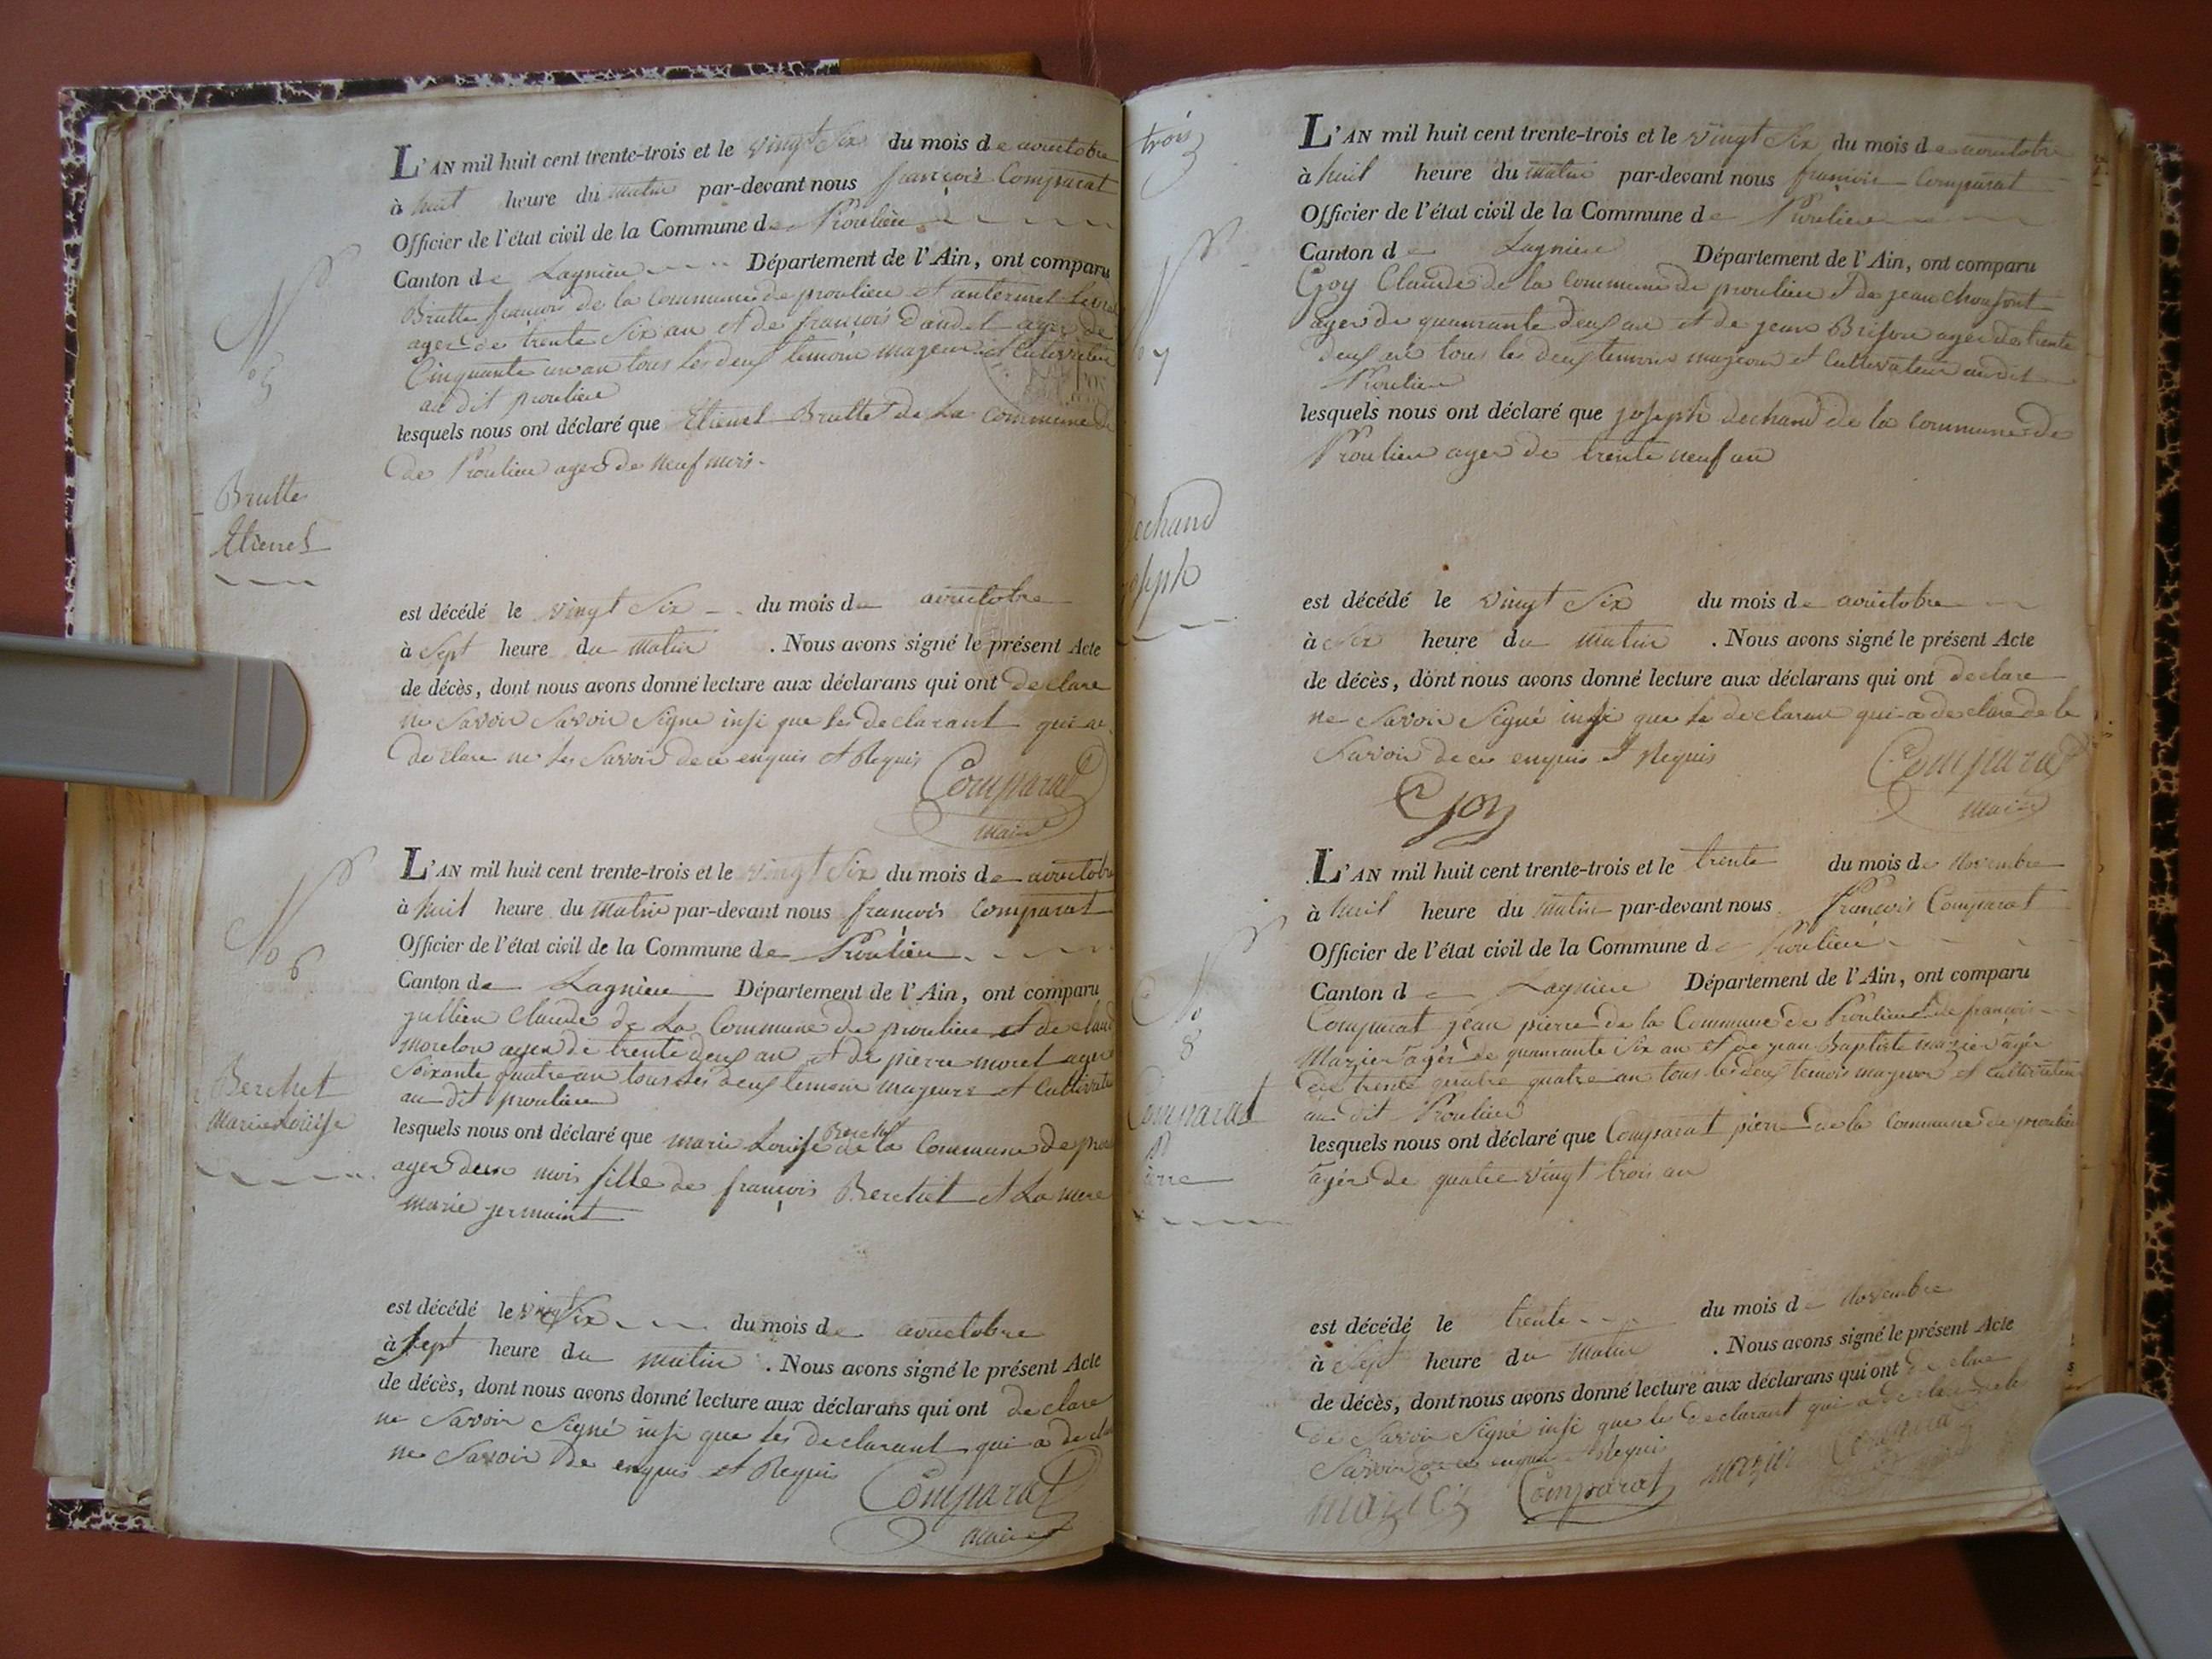 N°
5
Brutte
Etienet
L'AN mil huit cent trente-trois et le vingt Six du mois de aouctobre
à huit heure du matin par-devant nous françois Comparat
Officier de l'état civil de la Commune de Proulieu
Canton de Lagnieu Département de l'Ain, ont comparu
Brutte françois de la Commune de proulieu et
ager de trente Six an et de françois Daudet ager de
Cinquante un an tous les deux temoin mageur et Cultivateur
au dit proulieu
lesquels nous ont déclaré que Etienet Brutte de La Commune de
de Proulieu ager de neuf mois
est décédé le vingt Six du mois de aouctobre
à Sept heure du matin . Nous avons signé le présent Acte
de décès, dont nous avons donné lecture aux déclarans qui ont declare
ne Savoir Savoir Signe insi que les declarant qui a
declare ne les Savoir de ce enquis et Requis
Comparat
maire
N°
6
Berchet
Marie Louise
L'AN mil huit cent trente-trois et le vingt Six du mois de aouctobre
à huit heure du matin par-devant nous françois Comparat
Officier de l'état civil de la Commune de Proulieu
Canton de Lagnieu Département de l'Ain, ont comparu
jullien Claude de La Commune de proulieu et de claud
morelon ager de trente deux an et de pierre moret ager
Soixante quatre an tous les deux temoin majeurs et Cultivate
au dit proulieu
lesquels nous ont déclaré que marie Louise Berchet de la Commune de prou
ager deux mois fille de françois Berchet et La mere
marie jermaint
est décédé le vingt Six du mois de aouctobre
à Sept heure du matin . Nous avons signé le présent Acte
de décès, dont nous avons donné lecture aux déclarans qui ont declare
ne Savoir Signé insi que les declarant qui a decla
ne Savoir de enquis et Requis
Comparat
maire
trois
N°
7
dechand
joseph
L'AN mil huit cent trente-trois et le vingt Six du mois de aouctobre
à huit heure du matin par-devant nous françois Comparat
Officier de l'état civil de la Commune de Proulieu
Canton de Lagnieu Département de l'Ain, ont comparu
Goy Claude de la Commune de proulieu et de jean
ager de quanrante deux an et de jean Brison ager de trente
deux an tous les deux temoins majeur et Cultivateur au dit
Proulieu
lesquels nous ont déclaré que joseph dechand de la Commune de
Proulieu ager de trente neuf an
est décédé le vingt Six du mois de aouctobre
à Six heure du matin . Nous avons signé le présent Acte
de décès, dont nous avons donné lecture aux déclarans qui ont declare
ne Savoir Signé insi que le declarant qui a declare de le
Savoir de ce enquis et Requis
Comparat
maire
Goy
N°
8
Comparat
Pierre
L'AN mil huit cent trente-trois et le trente du mois de Novembre
à huit heure du matin par-devant nous François Comparat
Officier de l'état civil de la Commune de Proulieu
Canton de Lagnieu Département de l'Ain, ont comparu
Comparat jean pierre de la Commune de Proulieu et de françois
Mazier ager de quanrante Six an et de jean Baptiste mazier ager
de trente quatre quatre an tous les deux temois majeur et Cultivateur
au dit Proulieu
lesquels nous ont déclaré que Comparat pierre de la Commune de proulieu
ager de quatre vingt trois an
est décédé le trente du mois de Novembre
à Sept heure du matin . Nous avons signé le présent Acte
de décès, dont nous avons donné lecture aux déclarans qui ont declare
de Savoir Signé insi que le declarant qui a declare de le
Savoir de ce enquis et Requis
mazier Comparat mazier Comparat